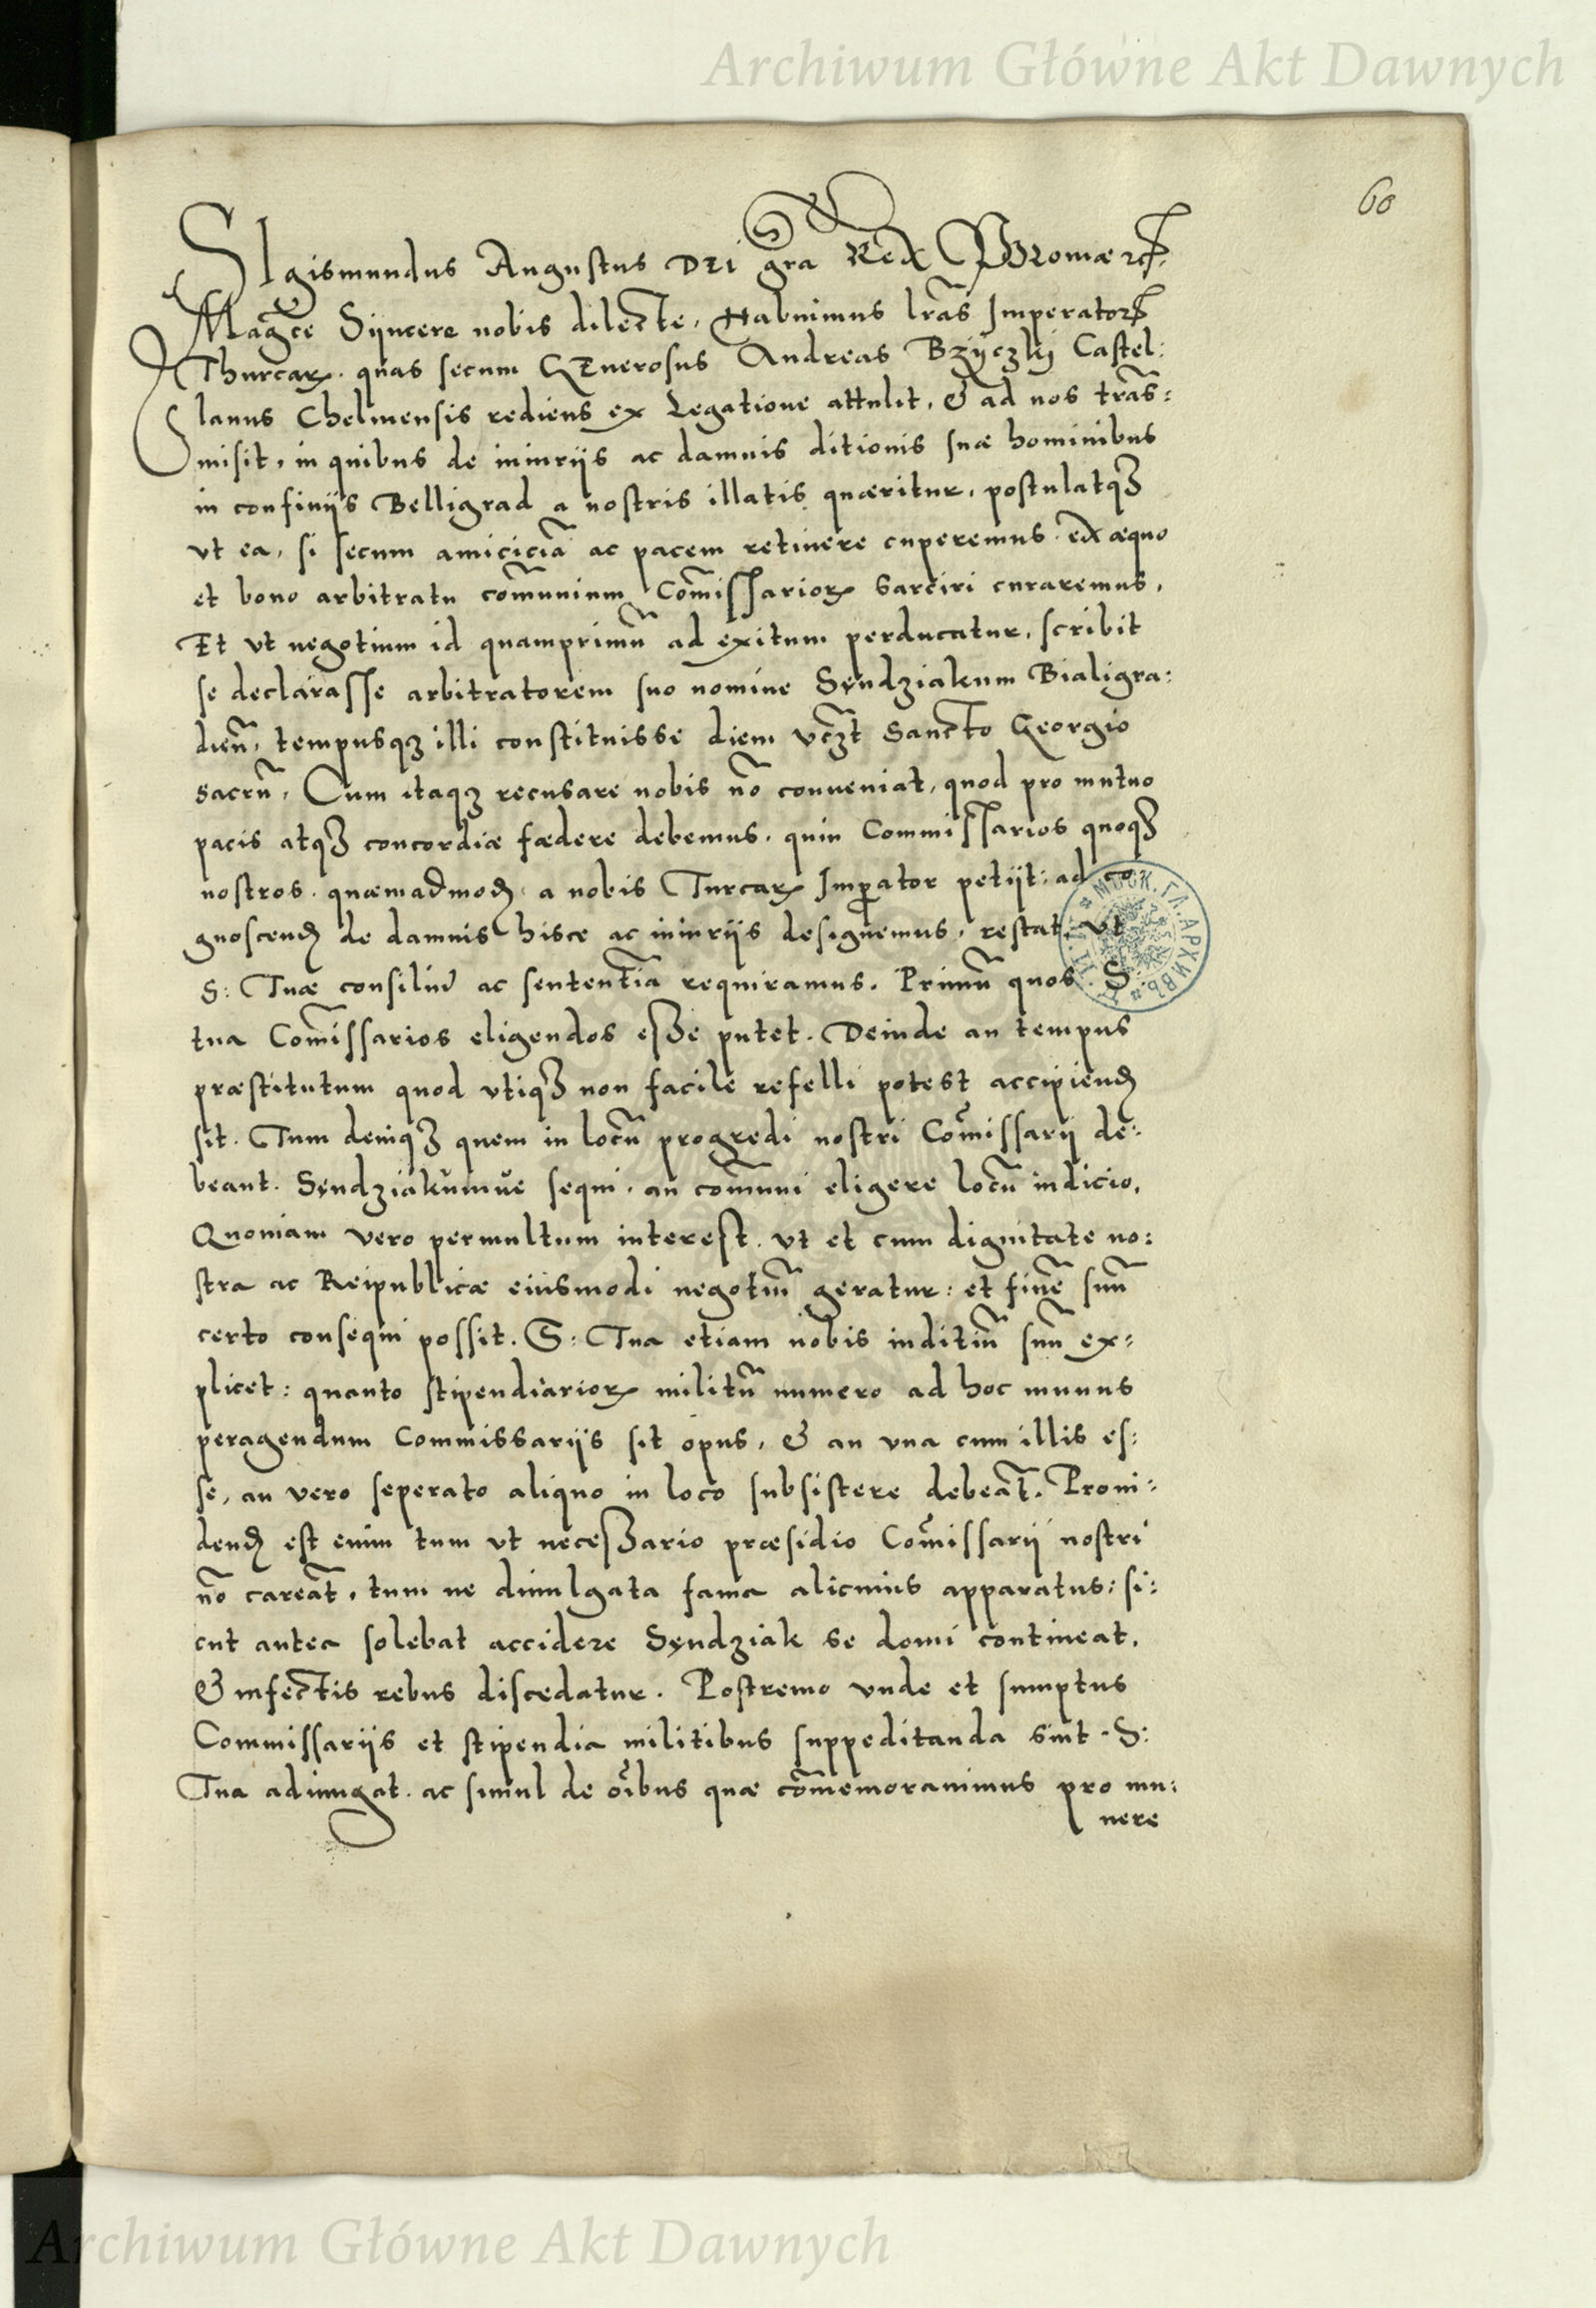 Archiwum Główne Akt Dawnych
60
SIgismundus Augustus DEI gra REX POloniæ
Magce Syncere nobis dilecte, Habuimus lras Imperatoris
Thurcaꝝ. quas secum GEnerosus Andreas Bzyczkj Castel:
lanus Chelmensis rediens ex Legatione attulit, & ad nos trãs:
misit, in quibus de iniurijs ac damnis ditionis suæ hominibus
in confinijs Belligrad a nostris illatis quæritur, postulatqꝫ
ut ea, si secum amiciciã ac pacem retinere cuperemus. ex æquo
et bono arbitratu com̃unium Com̃issarioꝝ sarciri curaremus,
Et vt negotium id quamprimũ ad exitum perducatur, scribit
se declarasse arbitratorem suo nomine Sendziakum Bialigra:
dieñ, tempusqꝫ illi constituisse diem vcꝫt Sancto Georgio
sacrũ, Cum itaqꝫ recusare nobis nõ conueniat, quod pro mutuo
pacis atqꝫ concordiæ fædere debemus, quin Commissarios quoqꝫ
nostros. quæmadmoď a nobis Turcaꝝ Imꝑator petijt: ad co
gnoscenď de damnis hisce ac iniurijs designemus, restat, vt
S: Tuæ consiliũ ac sententiã requiramus. Primũ quos S.
tua Com̃issarios eligendos esse putet. Deinde an tempus
præstitutum quod vtiqꝫ non facile refelli potest accipienď
sit. Tum deniqꝫ quem in locũ progredi nostri Com̃issarij de:
beant. Sendziakumue sequi, an com̃uni eligere locũ iudicio,
Quoniam vero permultum interest, vt et cum dignitate no:
stra ac Reipublicæ eiusmodi negotiũ geratur: et finẽ suũ
certo consequi possit. S: Tua etiam nobis inditiũ suũ ex:
plicet: quanto stipendiarioꝝ militũ numero ad hoc munus
peragendum Commissarijs sit opus, & an vna cum illis es:
se, an vero seperato aliquo in loco subsistere debeãt. Proui:
denď est enim tum vt necessario præsidio Com̃issarij nostri
nõ careãt, tum ne diuulgata fama alicuius apparatus: si:
cut antea solebat accidere Sendziak se domi contineat,
& infectis rebus discedatur. Postremo vnde et sumptus
Commissarijs et stipendia militibus suppeditanda sint. S:
Tua adiungat. ac simul de oĩbus quæ com̃emorauimus pro mu:
nere
МОСК. ГЛ. АРХИВЪ
Archiwum Główne Akt Dawnych